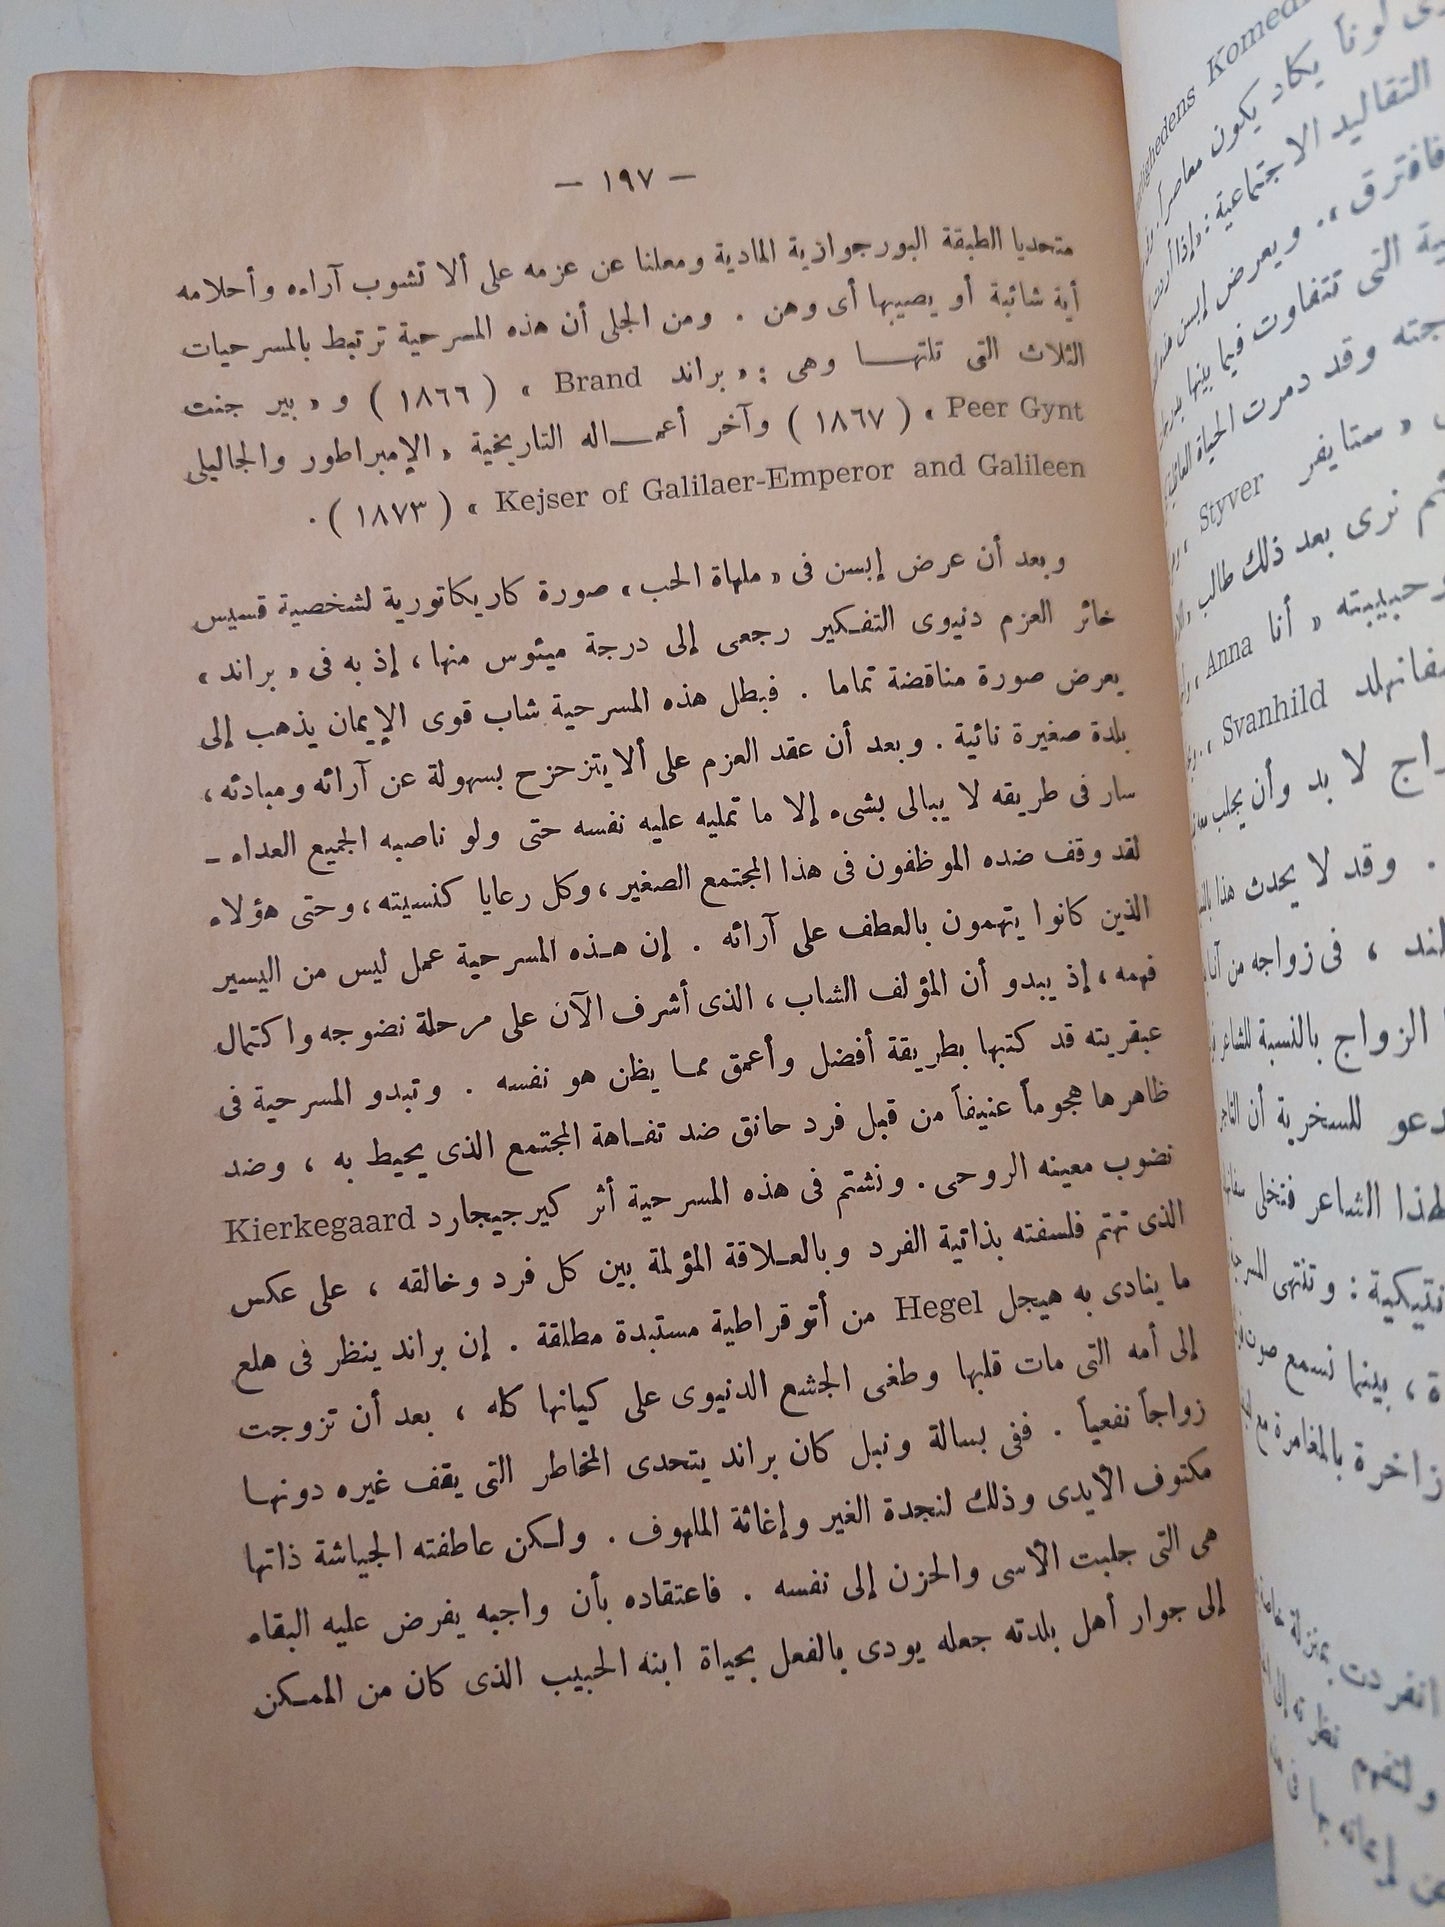 — ١٩٧ —
متحديا الطبقة البورجوازية المادية ومعلنا عن عزمه على ألا تشوب آراءه وأحلامه
أية شائبة أو يصيبها أى وهن . ومن الجلى أن هذه المسرحية ترتبط بالمسرحيات
الثلاث التى تلتهـــا وهى : « براند Brand » ( ١٨٦٦ ) و « بير جنت
Peer Gynt » ( ١٨٦٧ ) وآخر أعمـــاله التاريخية « الإمبراطور والجاليلى
Kejser of Galilaer-Emperor and Galileen » ( ١٨٧٣ ) .
وبعد أن عرض إبسن فى « ملهاة الحب » صورة كاريكاتورية لشخصية قسيس
خائر العزم دنيوى التفكير رجعى إلى درجة ميئوس منها ، إذ به فى « براند »
يعرض صورة مناقضة تماما . فبطل هذه المسرحية شاب قوى الإيمان يذهب إلى
بلدة صغيرة نائية . وبعد أن عقد العزم على ألا يتزحزح بسهولة عن آرائه ومبادئه ،
سار فى طريقه لا يبالى بشىء إلا ما تمليه عليه نفسه حتى ولو ناصبه الجميع العداء –
لقد وقف ضده الموظفون فى هذا المجتمع الصغير ، وكل رعايا كنسيته ، وحتى هؤلاء
الذين كانوا يتهمون بالعطف على آرائه . إن هـذه المسرحية عمل ليس من اليسير
فهمه ، إذ يبدو أن المؤلف الشاب ، الذى أشرف الآن على مرحلة نضوجه واكتمال
عبقريته قد كتبها بطريقة أفضل وأعمق ممـا يظن هو نفسه . وتبدو المسرحية فى
ظاهرها هجوماً عنيفاً من قبل فرد حانق ضد تفـاهة المجتمع الذى يحيط به ، وضد
نضوب معينه الروحى . ونشتم فى هذه المسرحية أثر كيرجيجارد Kierkegaard
الذى تهتم فلسفته بذاتية الفرد وبالعـلاقة المؤلمة بين كل فرد وخالقه ، على عكس
ما ينادى به هيجل Hegel من أتوقراطية مستبدة مطلقة . إن براند ينظر فى هلع
إلى أمه التى مات قلبها وطغى الجشع الدنيوى على كيانها كله ، بعد أن تزوجت
زواجاً نفعياً . ففى بسالة ونبل كان براند يتحدى المخاطر التى يقف غيره دونهـا
مكتوف الأيدى وذلك لنجدة الغير وإغاثة الملهوف . ولـكن عاطفته الجياشة ذاتها
هى التى جلبت الأسى والحزن إلى نفسه . فاعتقاده بأن واجبه يفرض عليه البقاء
إلى جوار أهل بلدته جعله يودى بالفعل بحياة ابنه الحبيب الذى كان من الممـكن
Komed
لوناً يكاد يكون معاصراً
التقاليد الاجتماعية : « إذا أردت
فافترق » . ويعرض إبسن
التى تتفاوت فيما بينها
وقد دمرت الحياة
« ستايفر Styver »
نرى بعد ذلك طالب
وحبيبته « أنا Anna »
Svanhild »
لا بد وأن يجلب
. وقد لا يحدث هذا
، فى زواجه من
الزواج بالنسبة للشاعر
للسخرية أن
الشاعر فتخلى
: وتنتهى
، بينما نسمع صوت
زاخرة بالمغامرة مع
انفردت بمنزلة
نظرته إلى